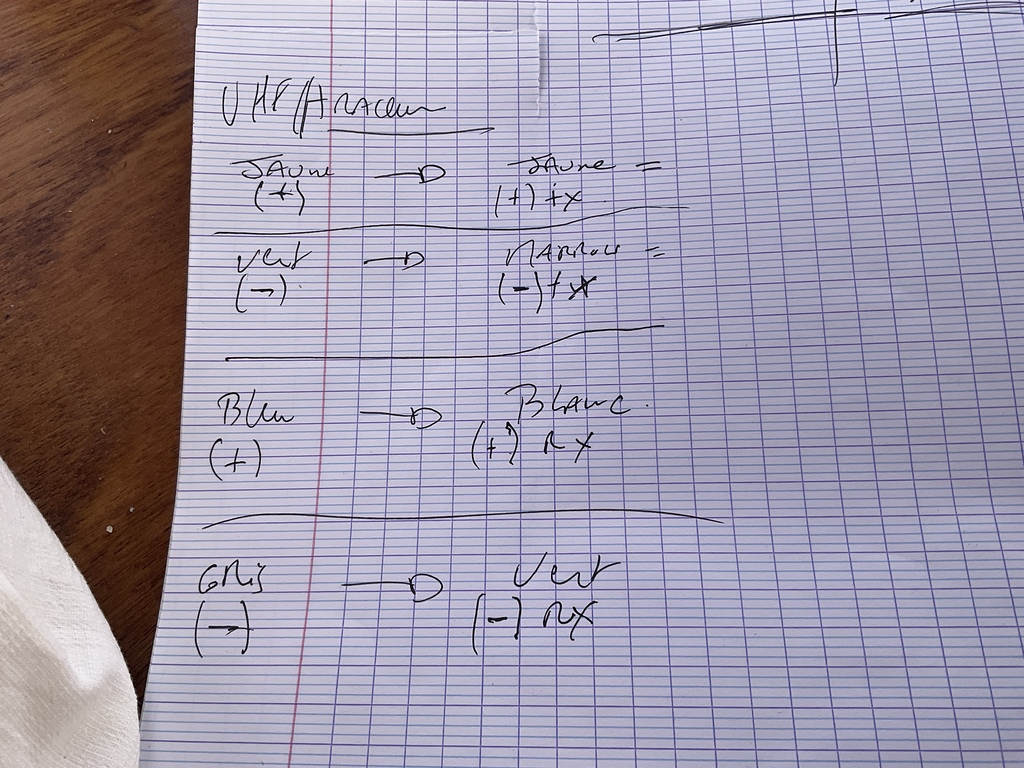 VHF/
Jaune → Jaune =
(+) (+) tx
Vert → Marron =
(-) (-) tx
Bleu → Blanc.
(+) (+) RX
GRis → Vert
(-) (-) RX